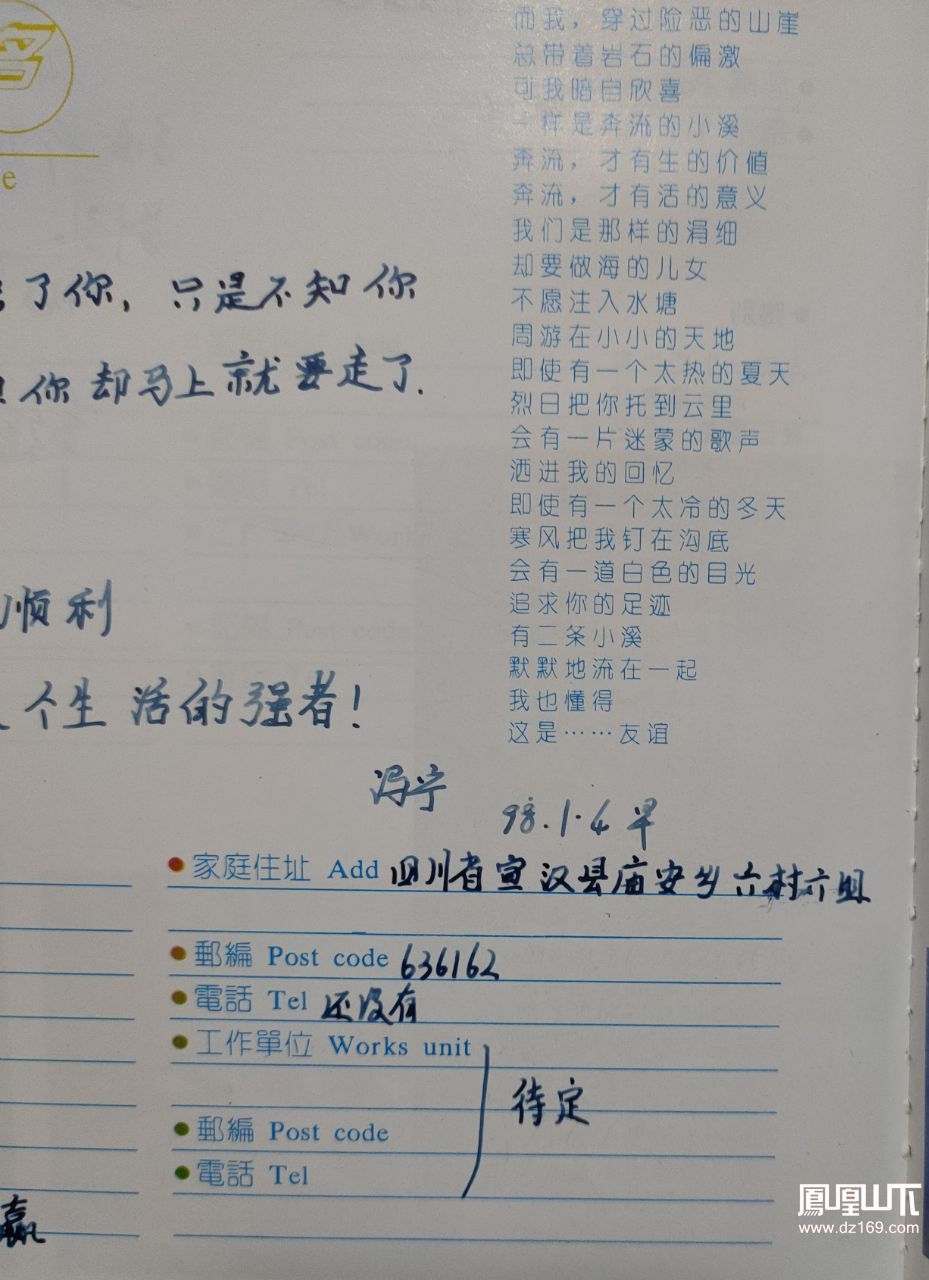 名
e
而我，穿过险恶的山崖
总带着岩石的偏激
可我暗自欣喜
一样是奔流的小溪
奔流，才有生的价值
奔流，才有活的意义
我们是那样的涓细
却要做海的儿女
不愿注入水塘
周游在小小的天地
即使有一个太热的夏天
烈日把你托到云里
会有一片迷蒙的歌声
洒进我的回忆
即使有一个太冷的冬天
寒风把我钉在沟底
会有一道白色的目光
追求你的足迹
有二条小溪
默默地流在一起
我也懂得
这是……友谊
了你，只是不知你
你却马上就要走了.
顺利
个生活的强者！
冯宁
98.1.4 早
家庭住址 Add 四川省宣汉县庙安乡六村六组
郵編 Post code 636162
電話 Tel 还没有
工作單位 Works unit
待定
郵編 Post code
電話 Tel
赢
鳳凰山下
www.dz169.com